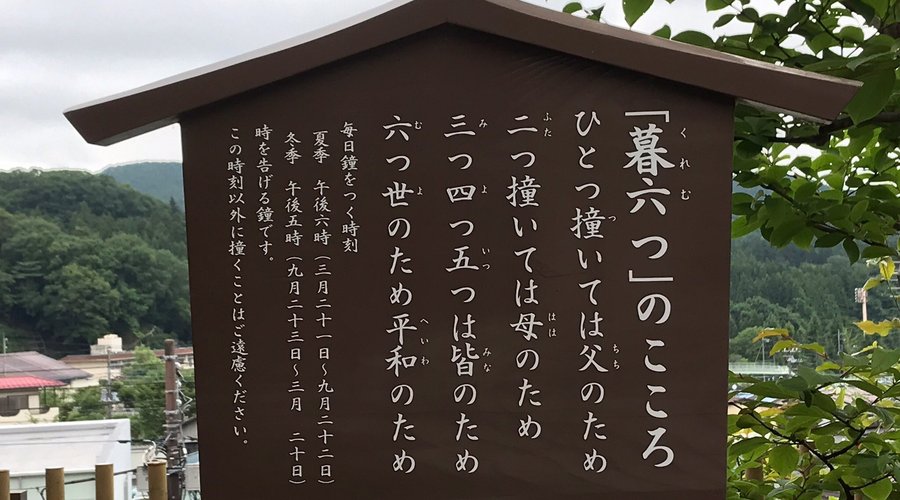 「暮六つ」のこころ
ひとつ撞いては父のため
二つ撞いては母のため
三つ四つ五つは皆のため
六つ世のため平和のため
毎日鐘をつく時刻
夏季 午後六時(三月二十一日～九月二十二日)
冬季 午後五時(九月二十三日～三月 二十日)
時を告げる鐘です。
この時刻以外に撞くことはご遠慮ください。